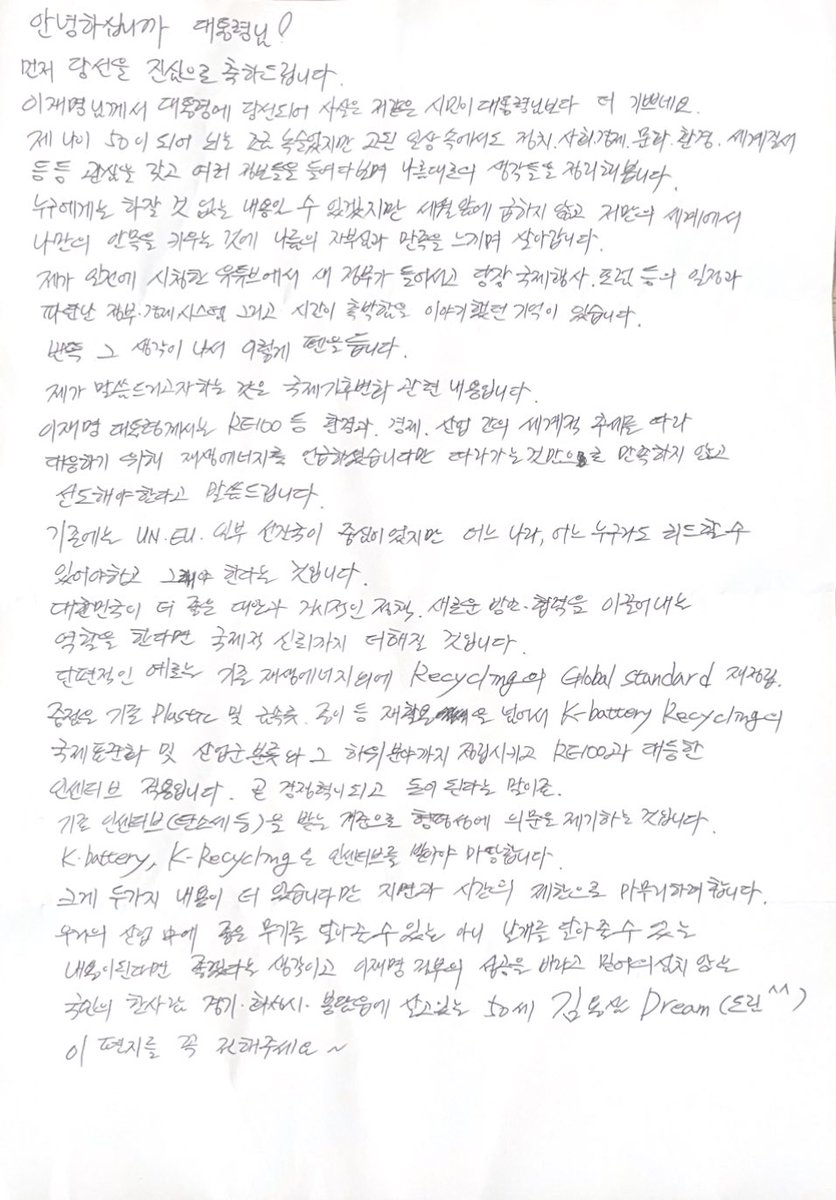 안녕하십니까 대통령님!
먼저 당선을 진심으로 축하드립니다.
이재명님께서 대통령에 당선되어 사실은 저같은 시민이 대통령님보다 더 기쁘네요.
제 나이 50이 되어 뇌는 조금 녹슬었지만 고된 일상 속에서도 정치.사회경제.문화.환경.세계질서
등등 관심을 갖고 여러 정보들을 들여다보며 나름대로의 생각들을 정리해봅니다.
누구에게는 하찮을 것 없는 내용일 수 있겠지만 세월앞에 굽하지 않고 저만의 세계에서
나만의 안목을 키우는 것에 나름의 자부심과 만족을 느끼며 살아갑니다.
제가 일전에 시청한 유튜브에서 새 정부가 들어서고 당장 국제행사.포럼 등의 일정과
정부.경제시스템 그리고 시간이 촉박함을 이야기했던 기억이 있습니다.
번뜩 그 생각이 나서 이렇게 펜을 듭니다.
제가 말씀드리고자하는 것은 국제기후변화 관련 내용입니다.
이재명 대통령께서는 RE100 등 환경과. 경제. 산업 간의 세계적 추세를 따라
대응하기 위해 재생에너지를 언급하셨습니다만 따라가는것만으로 만족하지 않고
선도해야한다고 말씀드립니다.
기존에는 UN.EU.일부 선진국이 중심이었지만 어느 나라, 어느 누구라도 리드할 수
있어야하고 그래야 한다는 것입니다.
대한민국이 더 좋은 대안과 가시적인 정책. 새로운 방안.협력을 이끌어내는
역할을 한다면 국제적 신뢰까지 더해질 것입니다.
단편적인 예로는 기존 재생에너지외에 Recycling의 Global standard 재정립.
중점은 기존 Plastic 및 금속류. 종이 등 재활용을 넘어서 K-battery Recycling의
국제표준화 및 산업군 분류와 그 하위분야까지 정립시키고 RE100과 대등한
인센티브 적용입니다. 곧 경쟁력이되고 돈이 된다는 말이죠.
기존 인센티브(탄소세 등)을 받는 기준으로 형평성에 의문을 제기하는 것입니다.
K-battery, K-Recycling은 인센티브를 받아야 마땅합니다.
크게 두가지 내용이 더 있습니다만 지면과 시간의 제한으로 마무리하려합니다.
우리의 산업 中에 좋은 무기를 달아줄 수 있는 아니 날개를 달아줄 수 있는
내용이된다면 좋겠다는 생각이고 이재명 정부의 성공을 바라고 믿어의심치 않는
국민의 한사람 경기.화성시.봉담읍에 살고있는 50세 김 Dream (드림^^)
이 편지를 꼭 전해주세요~